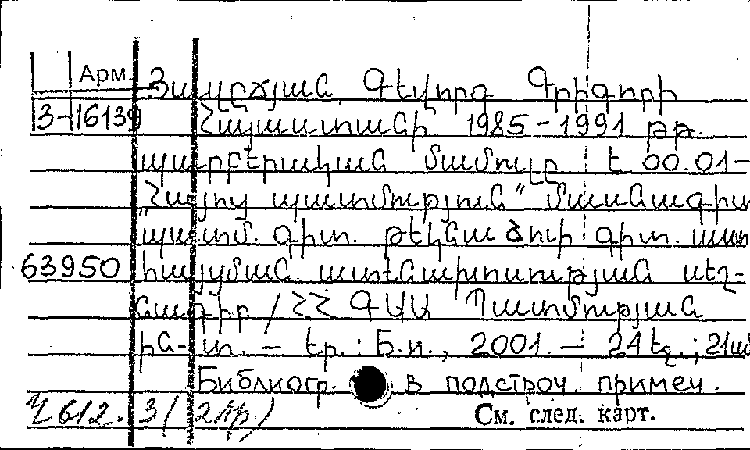 Арм
Յայլոյան Գևորգ Գրիգորի
3-16139
Հայաստանի 1985-1991 թթ.
պարբերական մամուլը է 00.01-
"Հայոց պատմություն" մասնագիտ
պատմ. գիտ. թեկնածուի գիտ. աստ
63950 իճայման ատենախոսության սեղ-
մագիր / ՀՀ ԳԱԱ Պատմության
ին-տ. – Եր. : Б.и., 2001. – 24 էջ. ; 21սմ
Библиогр. в подстроч. примеч.
Ч 612. 3 (2Пр)
См. след. карт.